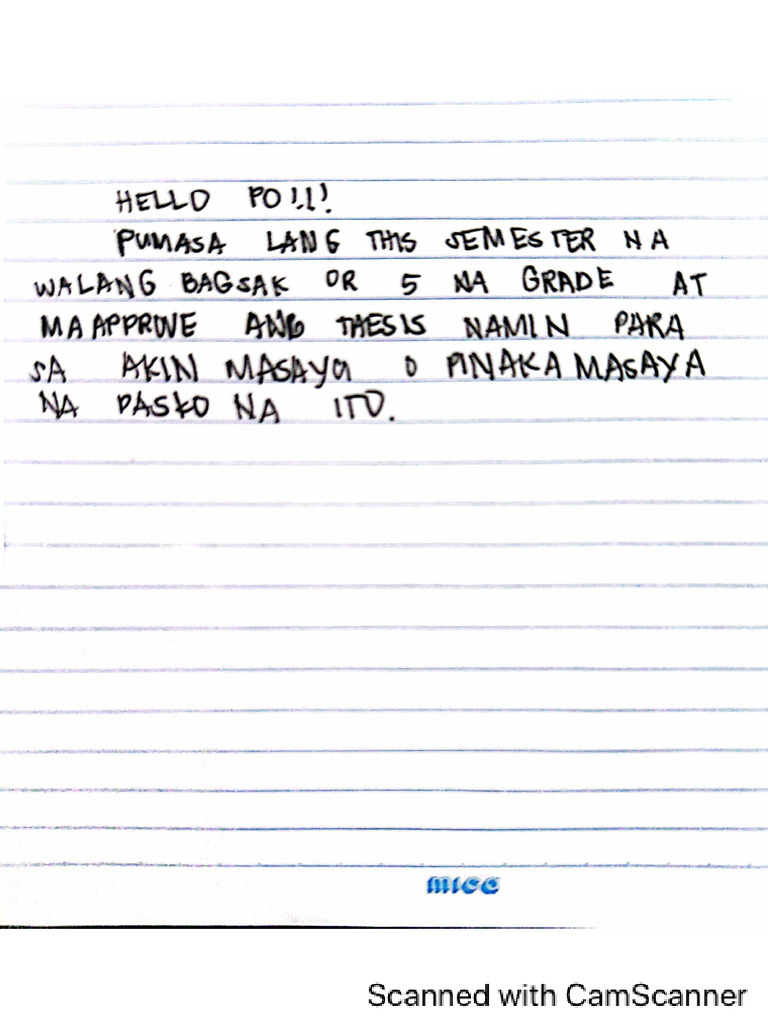 HELLO PO!.!!
PUMASA LANG THIS SEMESTER NA
WALANG BAGSAK OR 5 NA GRADE AT
MAAPPROVE ANG THESIS NAMIN PARA
SA AKIN MASAYA O PINAKA MASAYA
NA PASKO NA ITO.
mica
Scanned with CamScanner